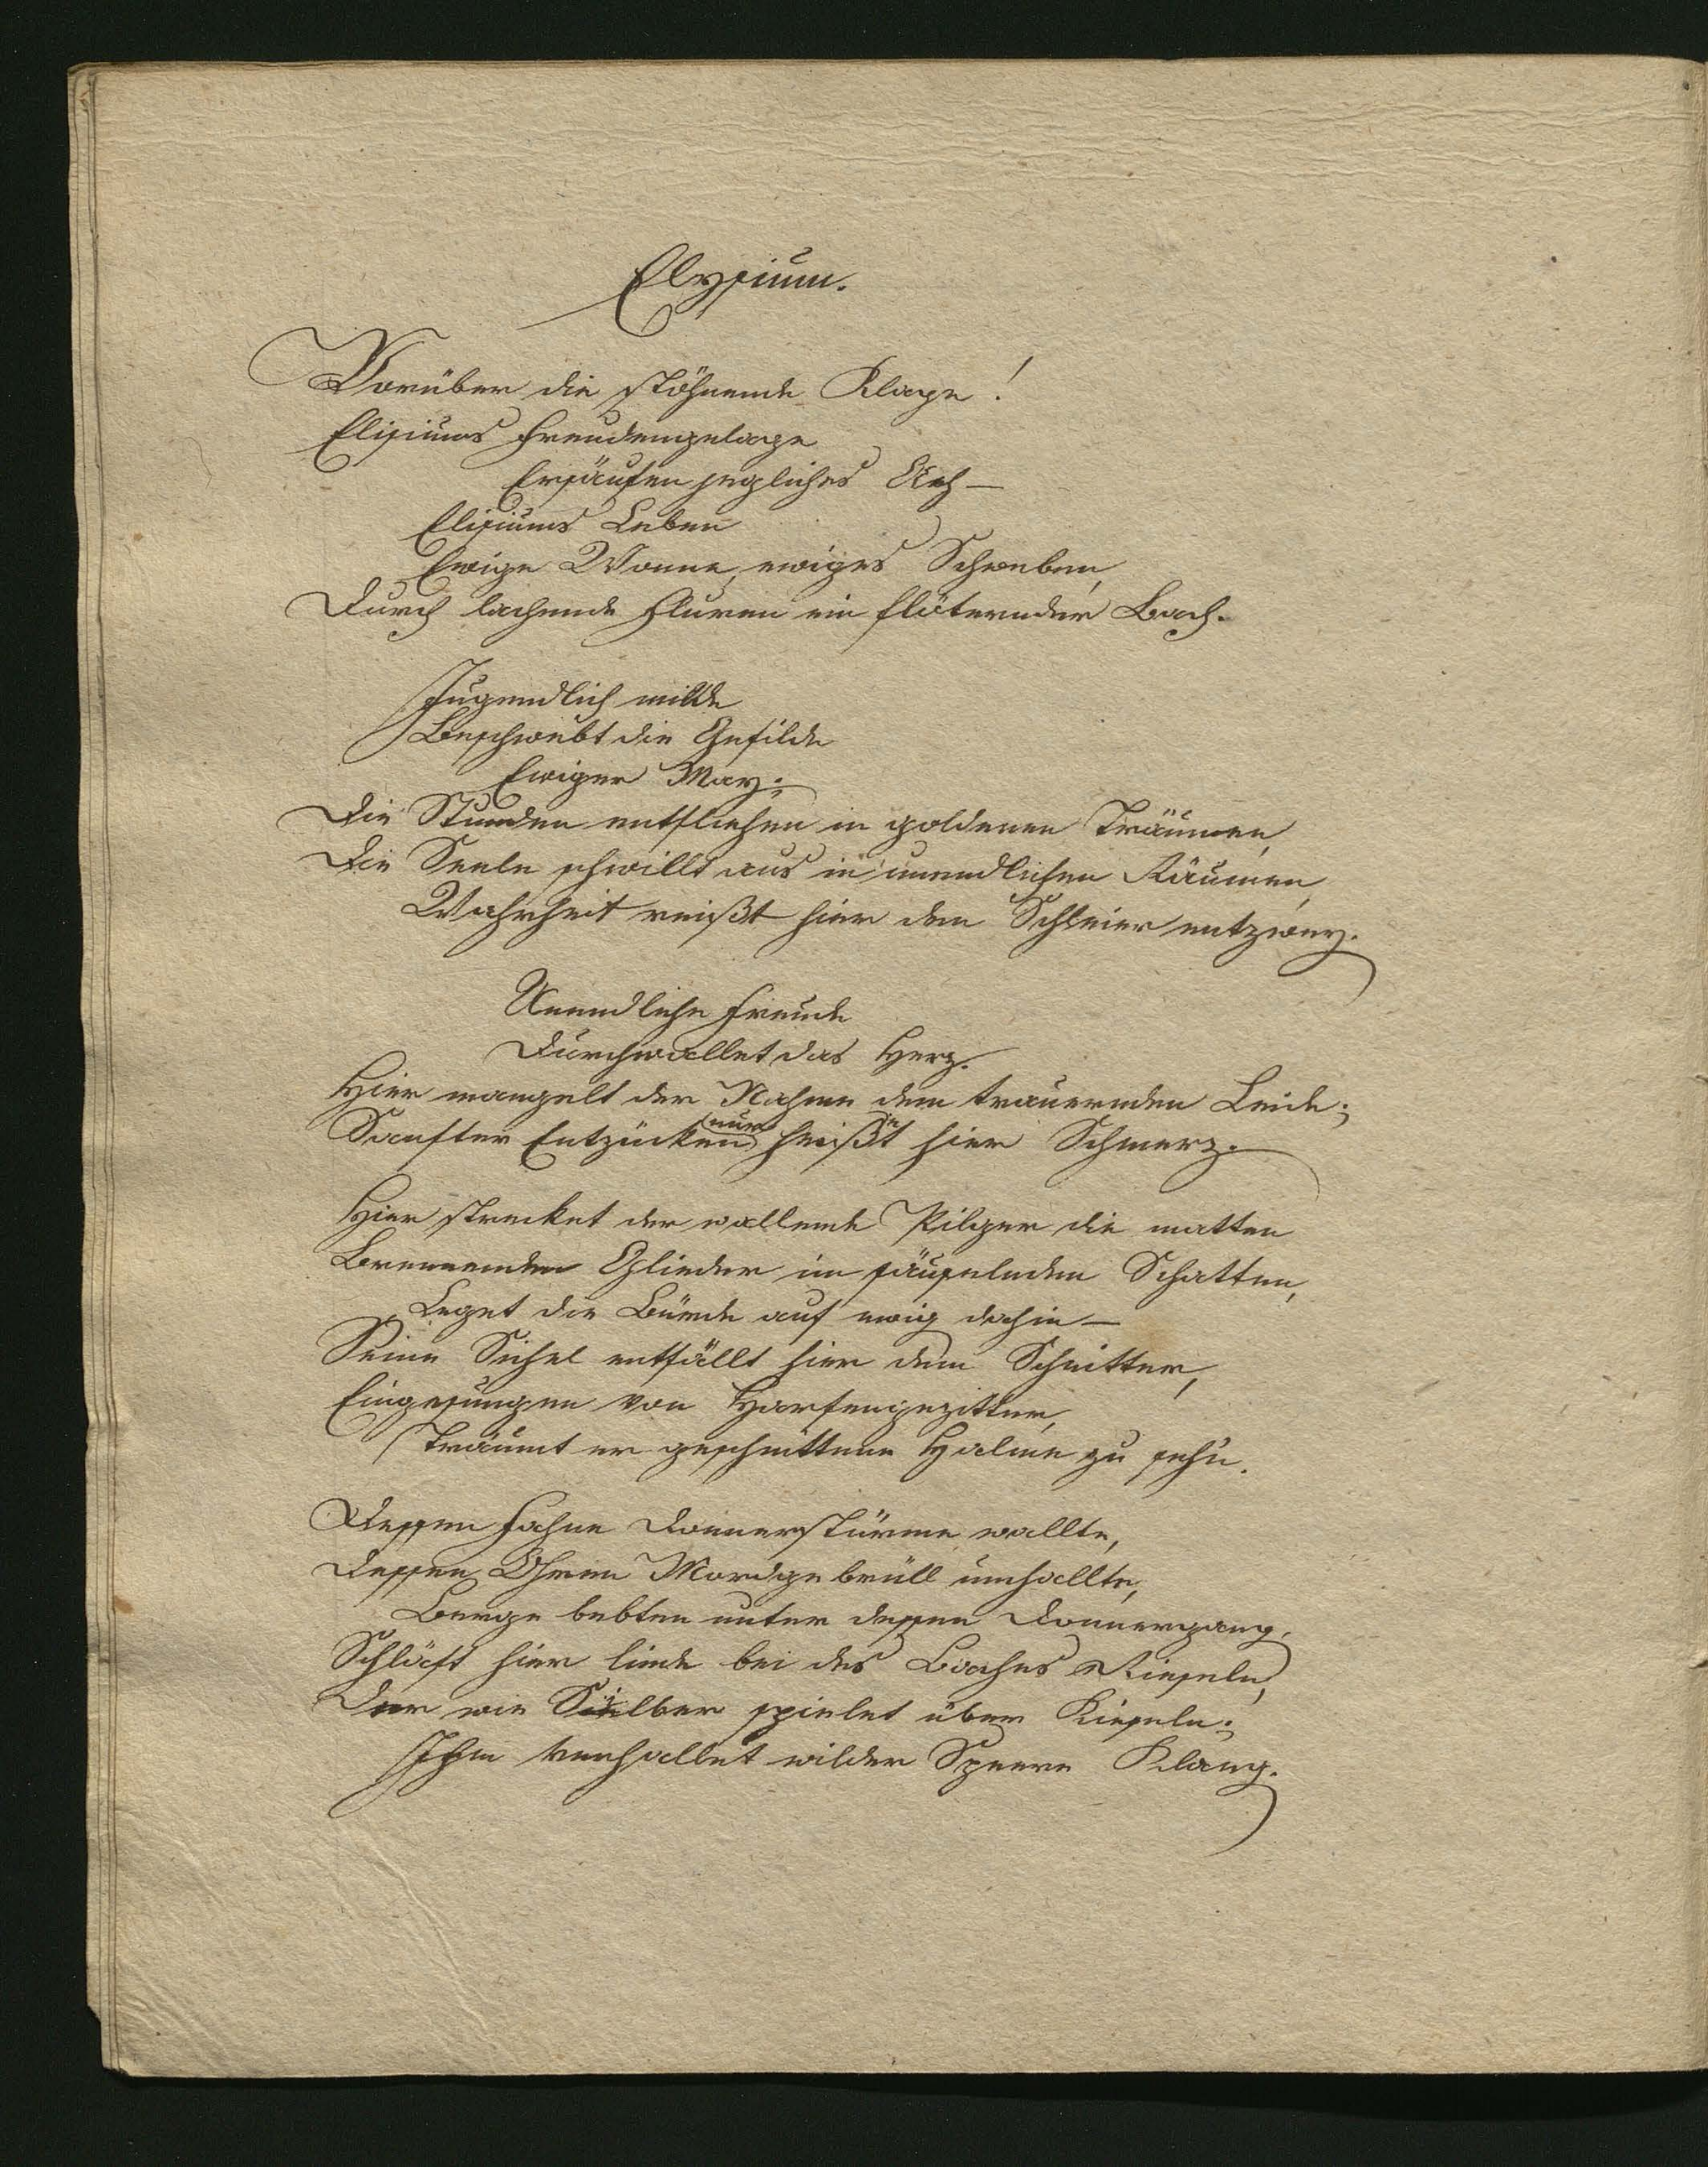 Elysium.
Vorüber die stöhnende Klage!
Elisiums Freudengelage
Ersäufen jegliches Ach—
Elisiums Leben
Ewige Wonne, ewiges Schweben,
Durch lachende Fluren ein flötender Bach.
Jugendlich milde
Beschwebt die Gefilde
Ewiger May;
Die Stunden entfliehen in goldenen Träumen,
Die Seele schwillt aus in unendlichen Räumen,
Wahrheit reißt hier den Schleier entzwey.
Unendliche Freude
Durchwallet das Herz.
Hier mangelt der Nahme dem trauernden Leide;
Sanfter Entzücken nur heißt hier Schmerz.
Hier strecket der wallende Pilger die matten
Brennenden Glieder im säuselnden Schatten,
Leget die Bürde auf ewig dahin—
Seine Sichel entfällt hier dem Schnitter,
Eingesungen von Harfengezitter,
Träumt er geschnittene Halme zu sehn.
Dessen Fahne Donnerstürme wallte,
Dessen Ohren Mordgebrüll umhallte,
Berge bebten unter dessen Donnergang,
Schläft hier linde bei des Baches Rieseln,
Der wie Silber spielet über Kieseln;
Ihm verhallet wilder Speere Klang.